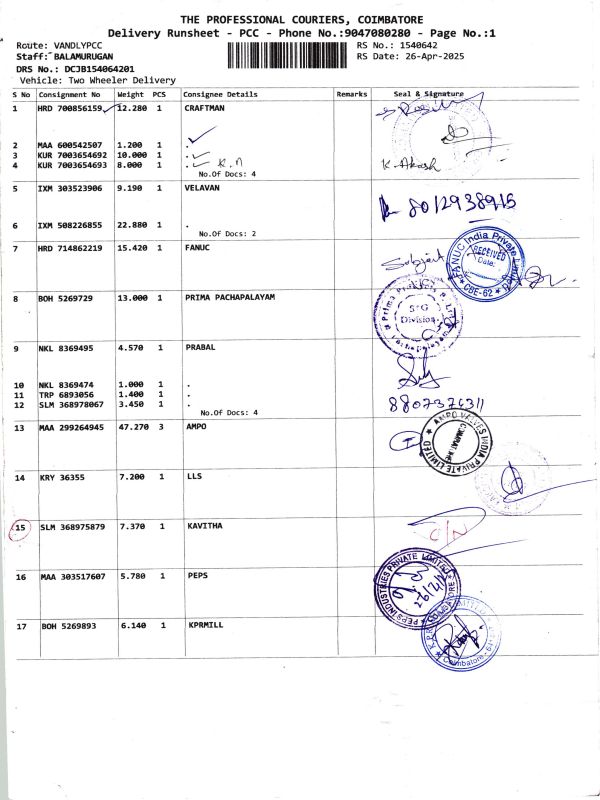 THE PROFESSIONAL COURIERS, COIMBATORE
Delivery Runsheet - PCC - Phone No.:9047080280 - Page No.:1
Route: VANDLYPCC RS No.: 1540642
Staff: BALAMURUGAN RS Date: 26-Apr-2025
DRS No.: DCJB154064201
Vehicle: Two Wheeler Delivery
S No Consignment No Weight PCS Consignee Details Remarks Seal & Signature
1 HRD 700856159 12.280 1 CRAFTMAN
2 MAA 600542507 1.200 1 .
3 KUR 7003654692 10.000 1 .
4 KUR 7003654693 8.000 1 . K.A K. Akash
No.Of Docs: 4
5 IXM 303523906 9.190 1 VELAVAN
8012938915
6 IXM 508226855 22.880 1 .
No.Of Docs: 2
7 HRD 714862219 15.420 1 FANUC
Subject
FANUC India Private
RECEIVED
Date:
CBE-62
8 BOH 5269729 13.000 1 PRIMA PACHAPALAYAM
S*G
Division
9 NKL 8369495 4.570 1 PRABAL
10 NKL 8369474 1.000 1 .
11 TRP 6893056 1.400 1 .
12 SLM 368978067 3.450 1 .
8807376311
No.Of Docs: 4
13 MAA 299264945 47.270 3 AMPO
AMPO VALVES INDIA PRIVATE LIMITED
14 KRY 36355 7.200 1 LLS
15 SLM 368975879 7.370 1 KAVITHA
16 MAA 303517607 5.780 1 PEPS
PEPS INDUSTRIES PRIVATE LIMITED
COIMBATORE
17 BOH 5269893 6.140 1 KPRMILL
K.P.R.
Coimbatore